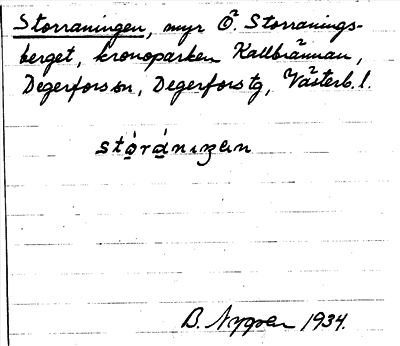 Storraningen, myr Ö. Storranings-
berget, kronoparken Kallbrännan,
Degerforssn, Degerforstg, Västerb. l.
stòrànızen
B. Nygren 1934.